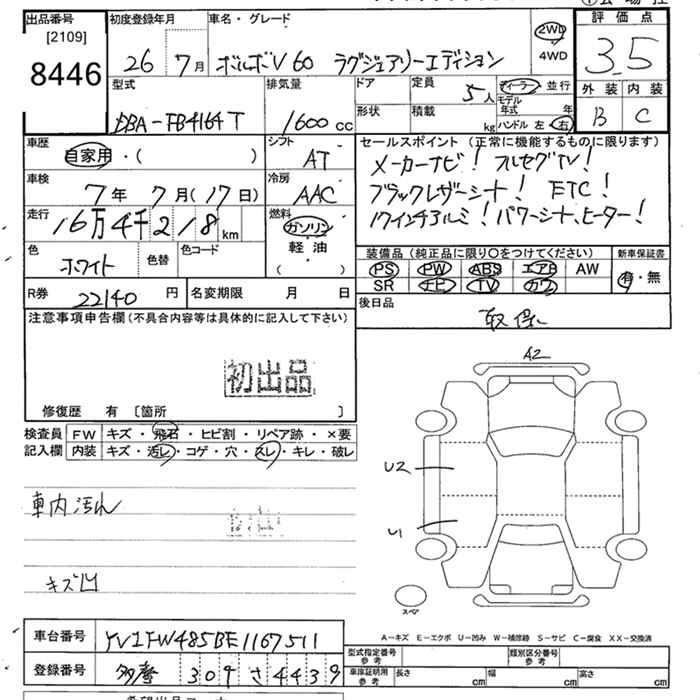 出品番号 初度登録年月 車名・グレード 評価点
[2109] 26年 7月 ボルボV60 ラグジュアリーエディション 2WD 4WD 3.5
8446
型式 排気量 ドア 定員 5人 ディーラー 並行 外装 内装
DBA-FB4164T 1600cc 形状 積載 kg モデル年式 年 ハンドル 左・右 B C
車歴 シフト セールスポイント (正常に機能するものに限ります)
自家用・( ) AT メーカーナビ! フルセグTV!
車検 冷房 ブラックレザーシート! ETC!
7年 7月(17日) AAC 17インチアルミ! パワーシート、ヒーター!
走行 燃料
16万4千218km ガソリン
色 色替 色コード 軽油 装備品(純正品に限り〇をつけてください) 新車保証書
ホワイト ( ) PS PW ABS エアB AW 有・無
SR ナビ TV カワ
R券 22140円 名変期限 月 日 後日品
注意事項申告欄(不具合内容等は具体的に記入して下さい) 取保
初出品
A2
修復歴 有 〔箇所 〕
検査員 FW キズ・飛石・ヒビ割・リペア跡・×要
記入欄 内装 キズ・汚し・コゲ・穴・スレ・キレ・破レ
U2
車内汚れ
U1
キズ凹
スペア
A-キズ E-エクボ U-凹み W-補修跡 S-サビ C-腐食 XX-交換済
車台番号 YV1FW485BE1167511 型式指定番号 参考 類別区分番号 参考
登録番号 多摩 309 さ 4439 車庫証明用 参考 長さ cm 幅 cm 高さ cm